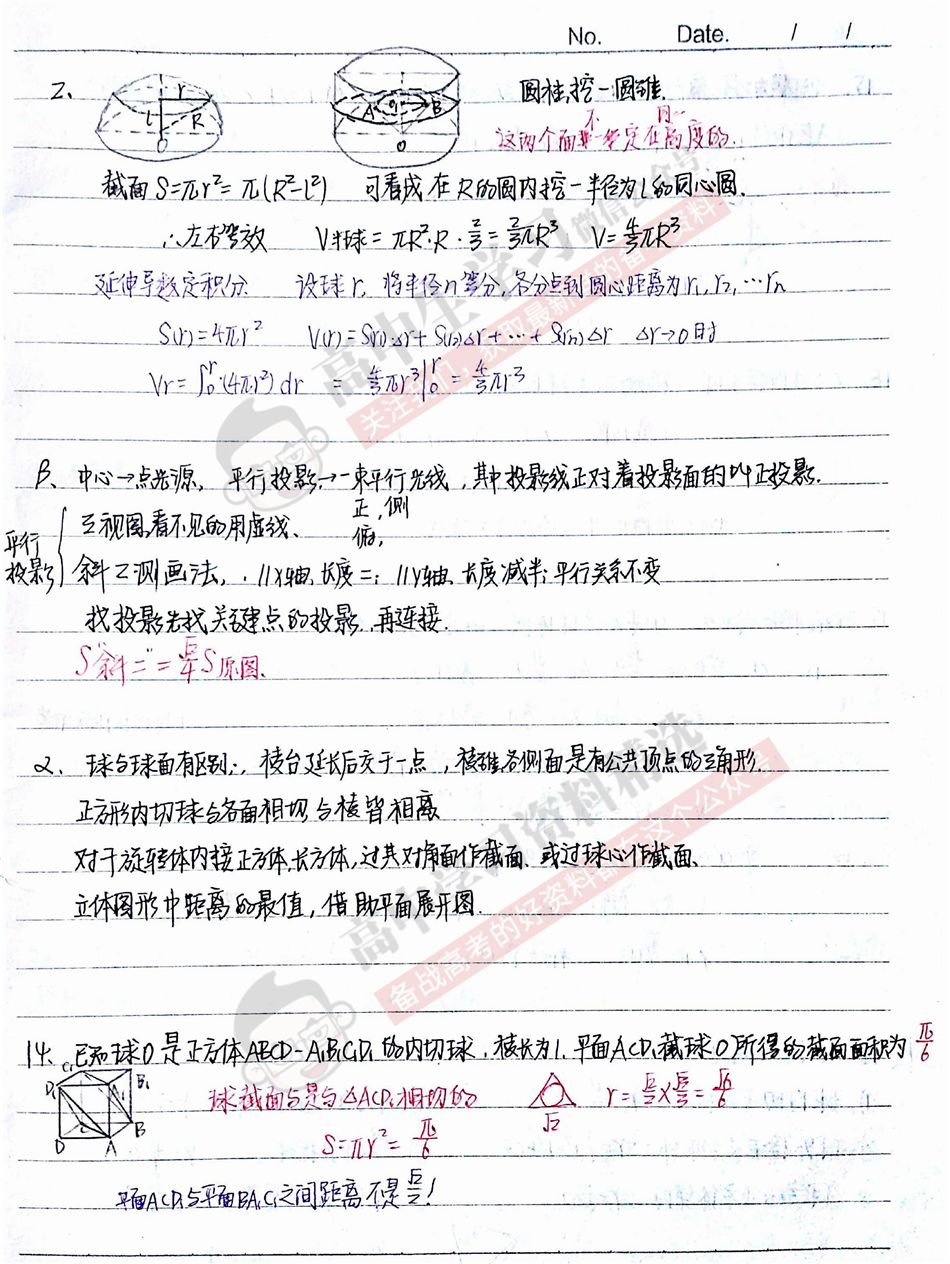 No. Date. / /
2、 r l R O A B O 圆柱,挖一圆锥.
这两个面不一定在同一高度的.
截面 S=πr²=π(R²-l²) 可看成在R的圆内挖一半径为l的同心圆.
∴左右等效 V半球=πR²·R·2/3=2/3πR³ V=4/3πR³
延伸导数定积分 设球r, 将半径n等分,各分点到圆心距离为r₁,r₂,…rₙ
S(r)=4πr² V(r)=S(r₁)△r+S(r₂)△r+…+S(rₙ)△r △r→0时
Vr=∫₀ʳ(4πr²)dr = 4/3πr³|₀ʳ = 4/3πr³
β、中心→点光源, 平行投影→一束平行光线,其中投影线正对着投影面的叫正投影.
平行投影 { 三视图,看不见的用虚线、 正,侧 俯,
斜二测画法, ∥x轴,长度=; ∥y轴、长度减半;平行关系不变
找投影先找关键点的投影,再连接.
S"斜二"=√2/4 S原图.
2、球与球面有区别;,棱台延长后交于一点,棱锥各侧面是有公共顶点的三角形.
正方形内切球与各面相切,与棱皆相离
对于旋转体内接正方体,长方体,过其对角面作截面、或过球心作截面、
立体图形中距离的最值,借助平面展开图.
14. 已知球O是正方体ABCD-A₁B₁C₁D₁的内切球,棱长为1,平面ACD₁截球O所得的截面面积为π/6
C₁ D₁ B₁ A₁ C B D A
球截面与是与△ACD₁相切的 √2 r=√2/2×√3/3=√6/6
S=πr²=π/6
平面ACD₁与平面BA₁C₁之间距离不是√2/2!
高中生学习
微信公众号
关注我们,获取最新的备考资料
高中学习资料精选
备战高考的好资料都在这个公众号